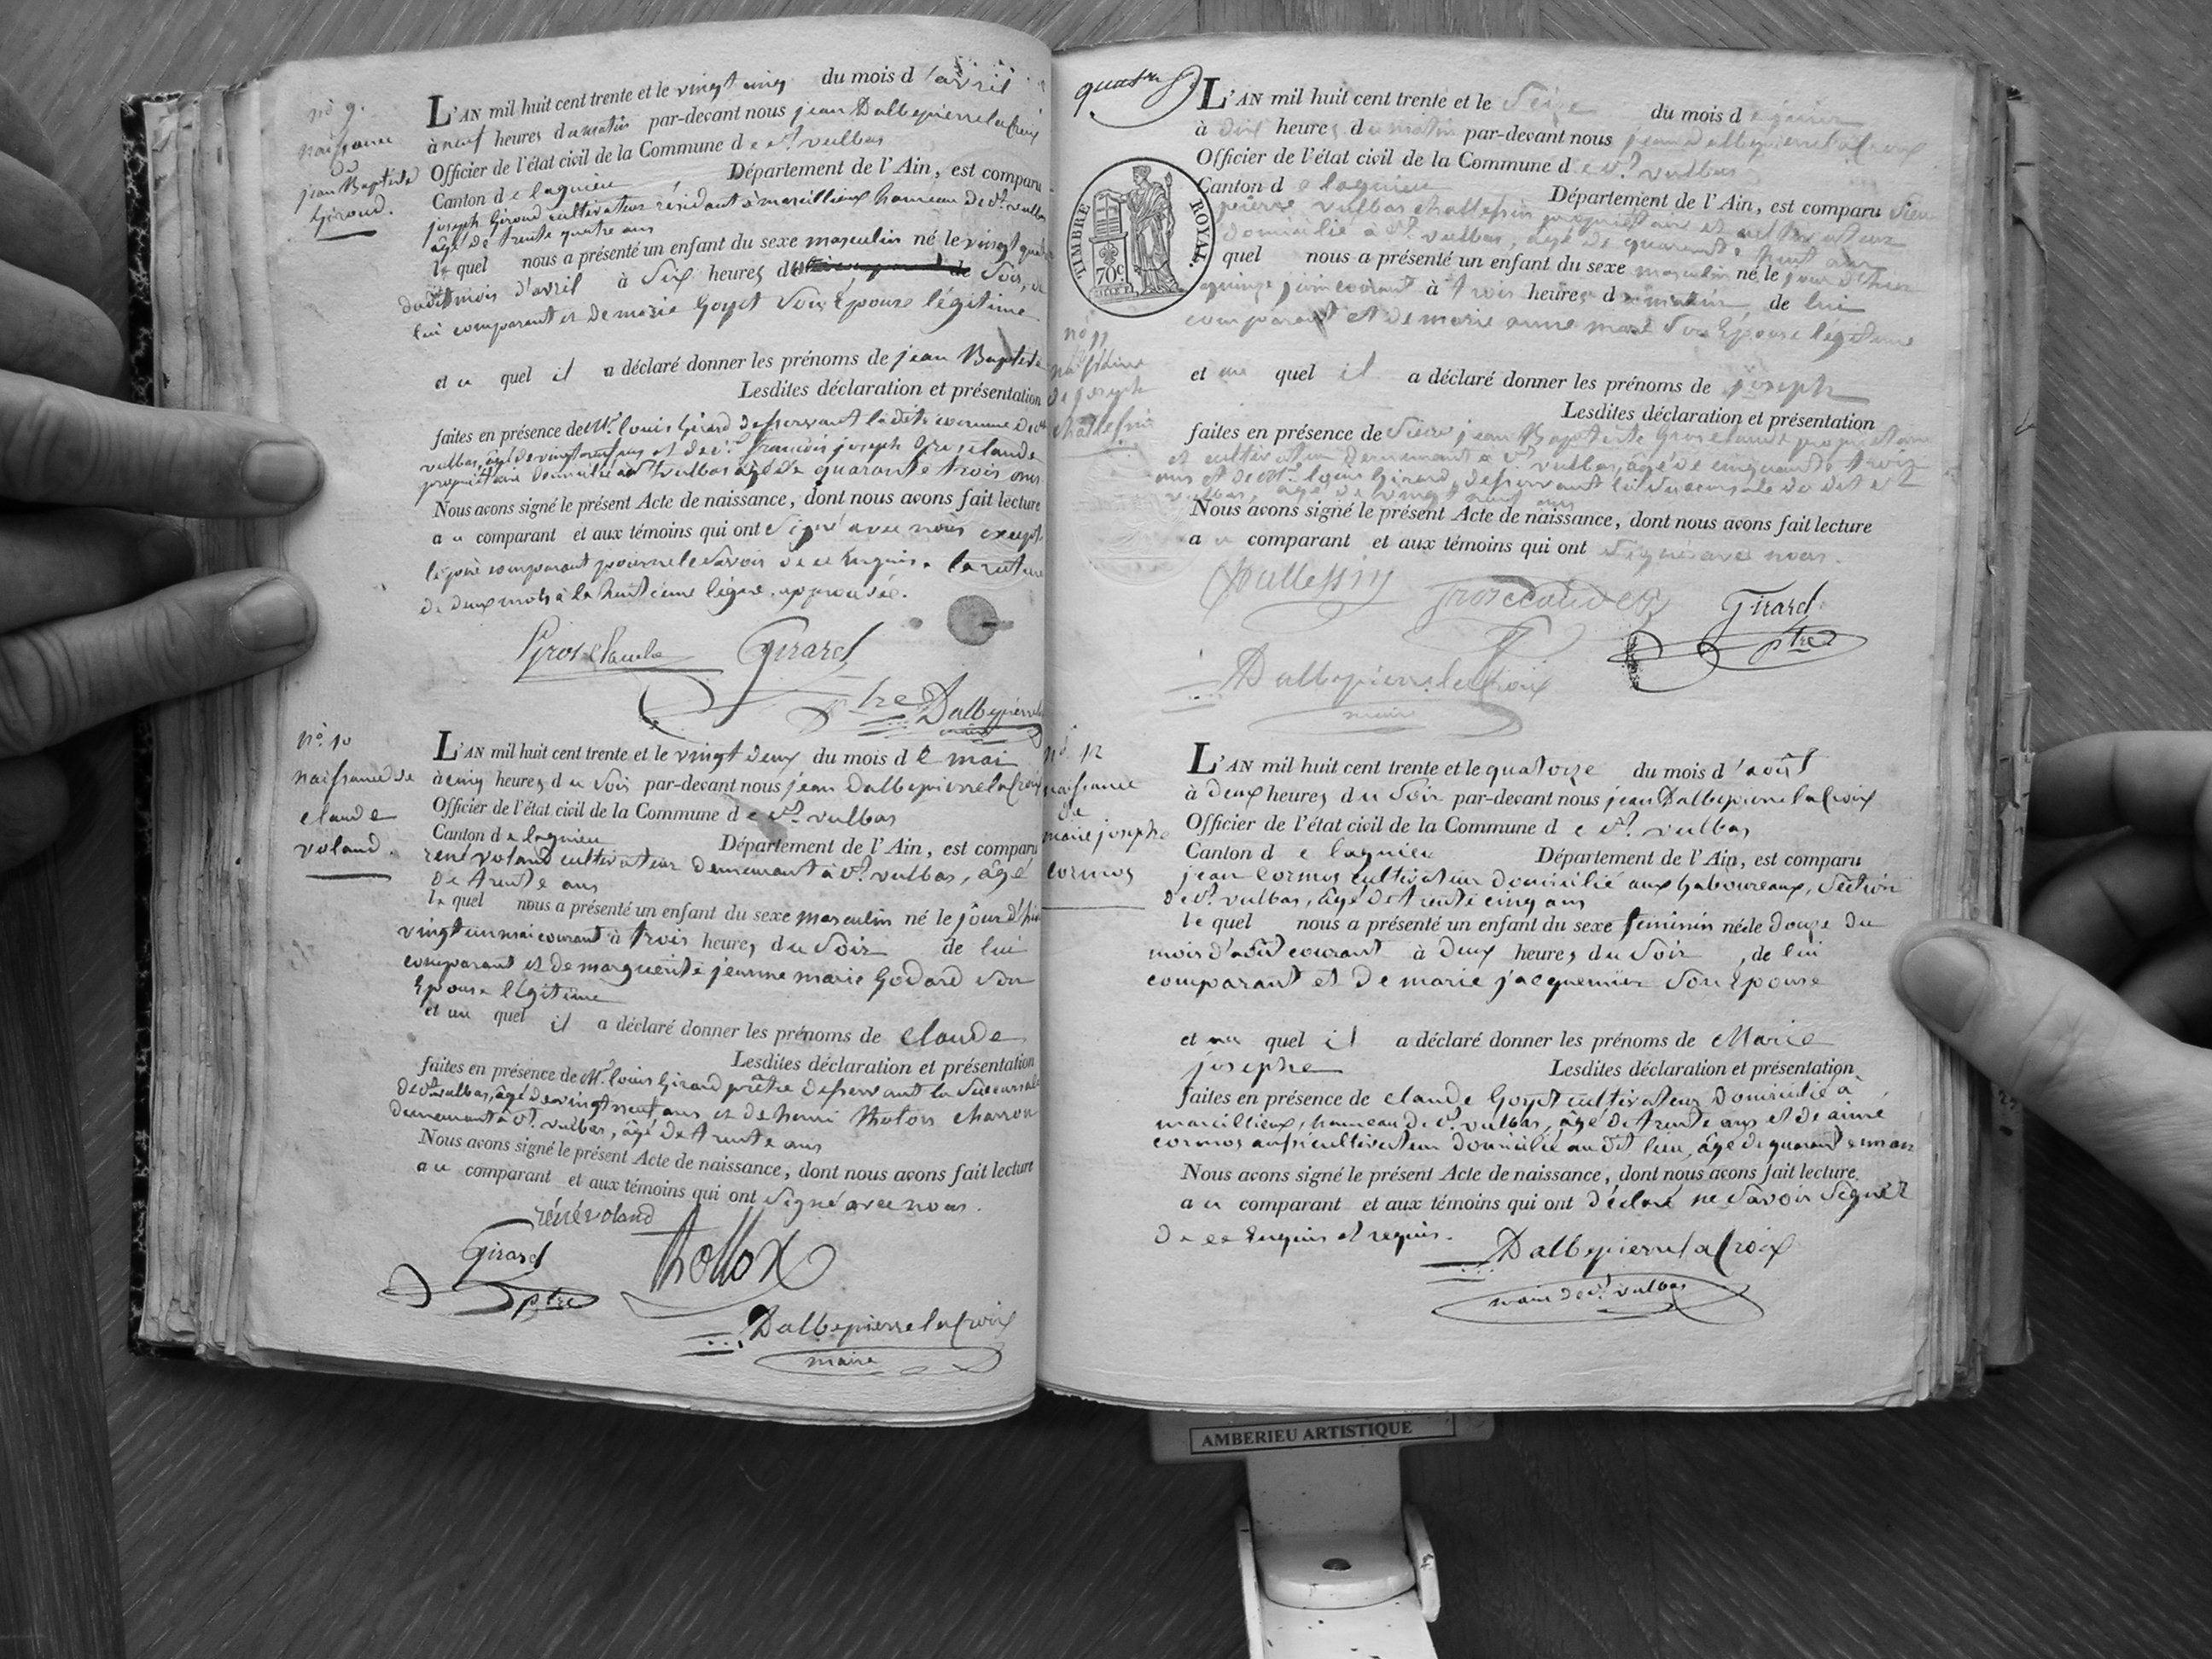 nº 9.
naissance
de
jean Baptiste
Giroud.
L'AN mil huit cent trente et le vingt cinq du mois d'avril
à neuf heures du matin par-devant nous jean Dalbepierrelacroix
Officier de l'état civil de la Commune de st. vulbas
Canton de lagnieu Département de l'Ain, est comparu
joseph Giroud cultivateur résidant à marcillieux hameau de st. vulbas
âgé de trente quatre ans
lequel nous a présenté un enfant du sexe masculin né le vingt quatre
dudit mois d'avril à six heures du soir, de
lui comparant et de marie Goyet son Epouse légitime
et auquel il a déclaré donner les prénoms de jean Baptiste
Lesdites déclaration et présentation
faites en présence de Mr. louis Girard desservant ladite commune de st.
vulbas, âgé de vingt neuf ans et de sr. françois joseph Grosclaude
propriétaire domicilié à st vulbas âgé de quarante trois ans
Nous avons signé le présent Acte de naissance, dont nous avons fait lecture
au comparant et aux témoins qui ont signé avec nous excepté
le père comparant pour ne le savoir de ce Enquis. la rature
de deux mots à la huitième ligne approuvée.
Grosclaude Girard
ptre Dalbepierrela
maire
nº. 10
naissance de
claude
voland.
L'AN mil huit cent trente et le vingt deux du mois de mai
à cinq heures du soir par-devant nous jean Dalbepierrelacroix
Officier de l'état civil de la Commune de st. vulbas
Canton de lagnieu Département de l'Ain, est comparu
rené voland cultivateur demeurant à st. vulbas, âgé
de trente ans
lequel nous a présenté un enfant du sexe masculin né le jour d'hier
vingt un mai courant à trois heures du soir de lui
comparant et de marguerite jeanne marie Godard son
Epouse légitime
et auquel il a déclaré donner les prénoms de claude
Lesdites déclaration et présentation
faites en présence de Mr. louis Girard prêtre desservant la succursale
de st. vulbas, âgé de vingt neuf ans et de henri tholon charron
demeurant à st. vulbas, âgé de trente ans
Nous avons signé le présent Acte de naissance, dont nous avons fait lecture
au comparant et aux témoins qui ont signé avec nous.
rénévoland
Girard
ptre
Dalbepierrelacroix
maire
quatre
TIMBRE ROYAL.
70c
L'AN mil huit cent trente et le seize du mois de juin
à dix heures du matin par-devant nous jean dalbepierrelacroix
Officier de l'état civil de la Commune de st. vulbas
Canton de lagnieu Département de l'Ain, est comparu sieur
pierre vulbas challessin propriétaire et cultivateur
domicilié à st. vulbas, âgé de quarante huit ans
quel nous a présenté un enfant du sexe masculin né le jour d'hier
quinze juin courant à trois heures du matin, de lui
comparant et de marie anne son Epouse légitime
nº 11
naissance
de joseph
challessin
et auquel il a déclaré donner les prénoms de joseph
Lesdites déclaration et présentation
faites en présence de sieur jean Baptiste Grosclaude propriétaire
et cultivateur demeurant à st. vulbas, âgé de cinquante trois
ans et de Mr. louis Girard, desservant la succursale du dit st
vulbas, âgé de vingt neuf ans
Nous avons signé le présent Acte de naissance, dont nous avons fait lecture
au comparant et aux témoins qui ont signé avec nous.
Challessin Grosclaude Girard
ptre
Dalbepierrelacroix
maire
nº 12
naissance
de
marie josephe
cormos
L'AN mil huit cent trente et le quatorze du mois d'août
à deux heures du soir par-devant nous jean Dalbepierrelacroix
Officier de l'état civil de la Commune de st. vulbas
Canton de lagnieu Département de l'Ain, est comparu
jean cormos cultivateur domicilié aux gaboureaux, section
de st. vulbas, âgé de trente cinq ans
lequel nous a présenté un enfant du sexe feminin né le douze du
mois d'août courant à deux heures du soir, de lui
comparant et de marie jacquemier son Epouse
et auquel il a déclaré donner les prénoms de Marie
josephe Lesdites déclaration et présentation
faites en présence de claude Goyet cultivateur domicilié à
marcillieux, hameau de st. vulbas, âgé de trente ans et de aimé
cormos aussi cultivateur domicilié au dit lieu, âgé de quarante un ans
Nous avons signé le présent Acte de naissance, dont nous avons fait lecture
au comparant et aux témoins qui ont déclaré ne savoir signer
de ce Enquis et requis.
Dalbepierrelacroix
maire de st. vulbas
AMBERIEU ARTISTIQUE